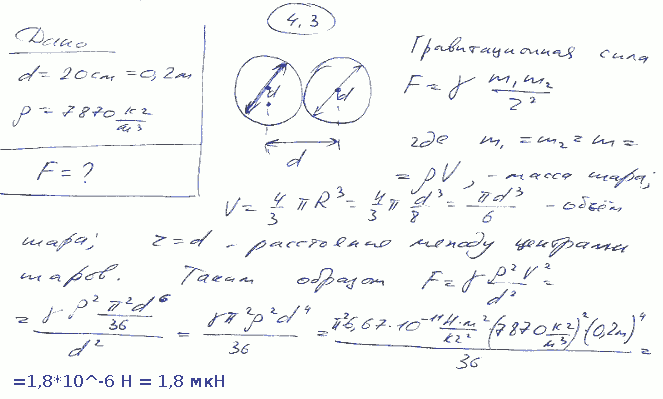 4.3
Дано
d = 20 см = 0,2 м
ρ = 7870 кг/м³
F = ?
d d
d
Гравитационная сила
F = γ m₁m₂/r²
где m₁ = m₂ = m =
= ρV, - масса шара;
V = 4/3 πR³ = 4/3 π d³/8 = πd³/6 - объём
шара; r = d - расстояние между центрами
шаров. Таким образом F = γ ρ²V²/d² =
= γ ρ² π²d⁶/36 / d² = γπ²ρ²d⁴/36 = π²6,67·10⁻¹¹ Н·м²/кг² (7870 кг/м³)² (0,2м)⁴/36 =
=1,8*10^-6 Н = 1,8 мкН